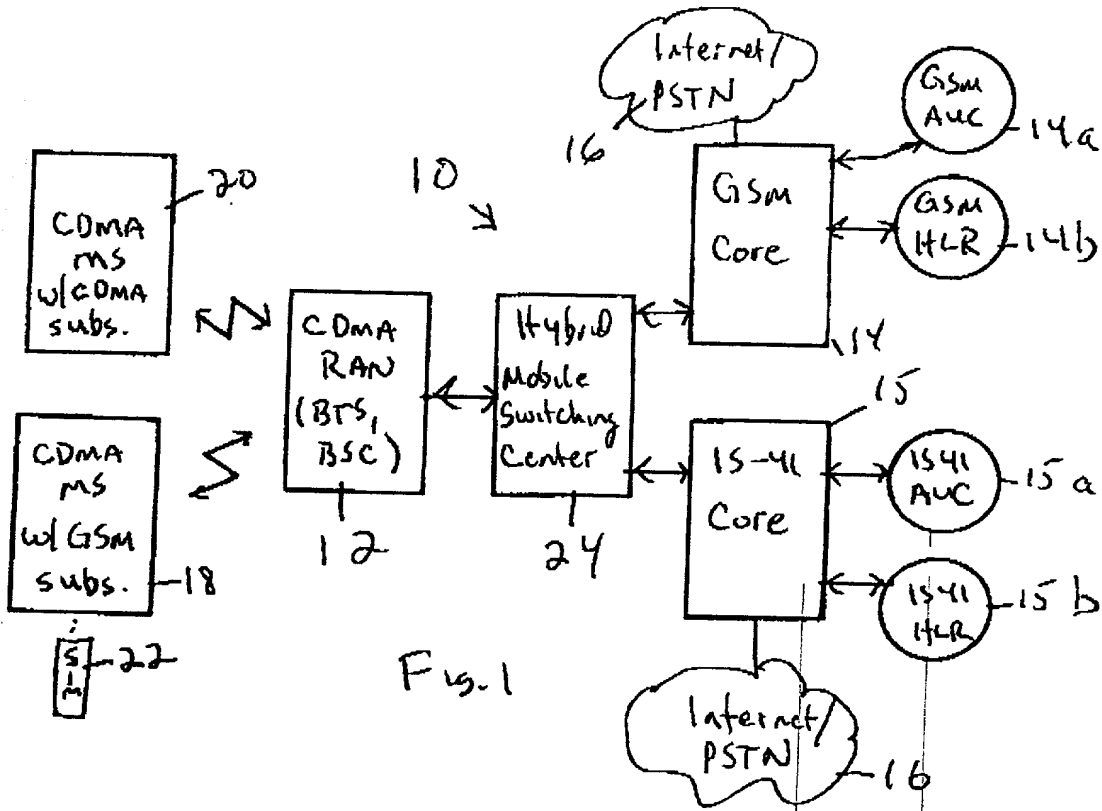 Internet/
PSTN
16
GSM
AUC
14a
GSM
HLR
14b
GSM
Core
114
10
20
CDMA
MS
w/CDMA
subs.
CDMA
RAN
(BTS,
BSC)
12
Hybrid
Mobile
Switching
Center
24
CDMA
MS
w/ GSM
subs.
18
SIM
22
15
IS-41
Core
IS41
AUC
15a
IS41
HLR
15b
Fig. 1
Internet/
PSTN
16